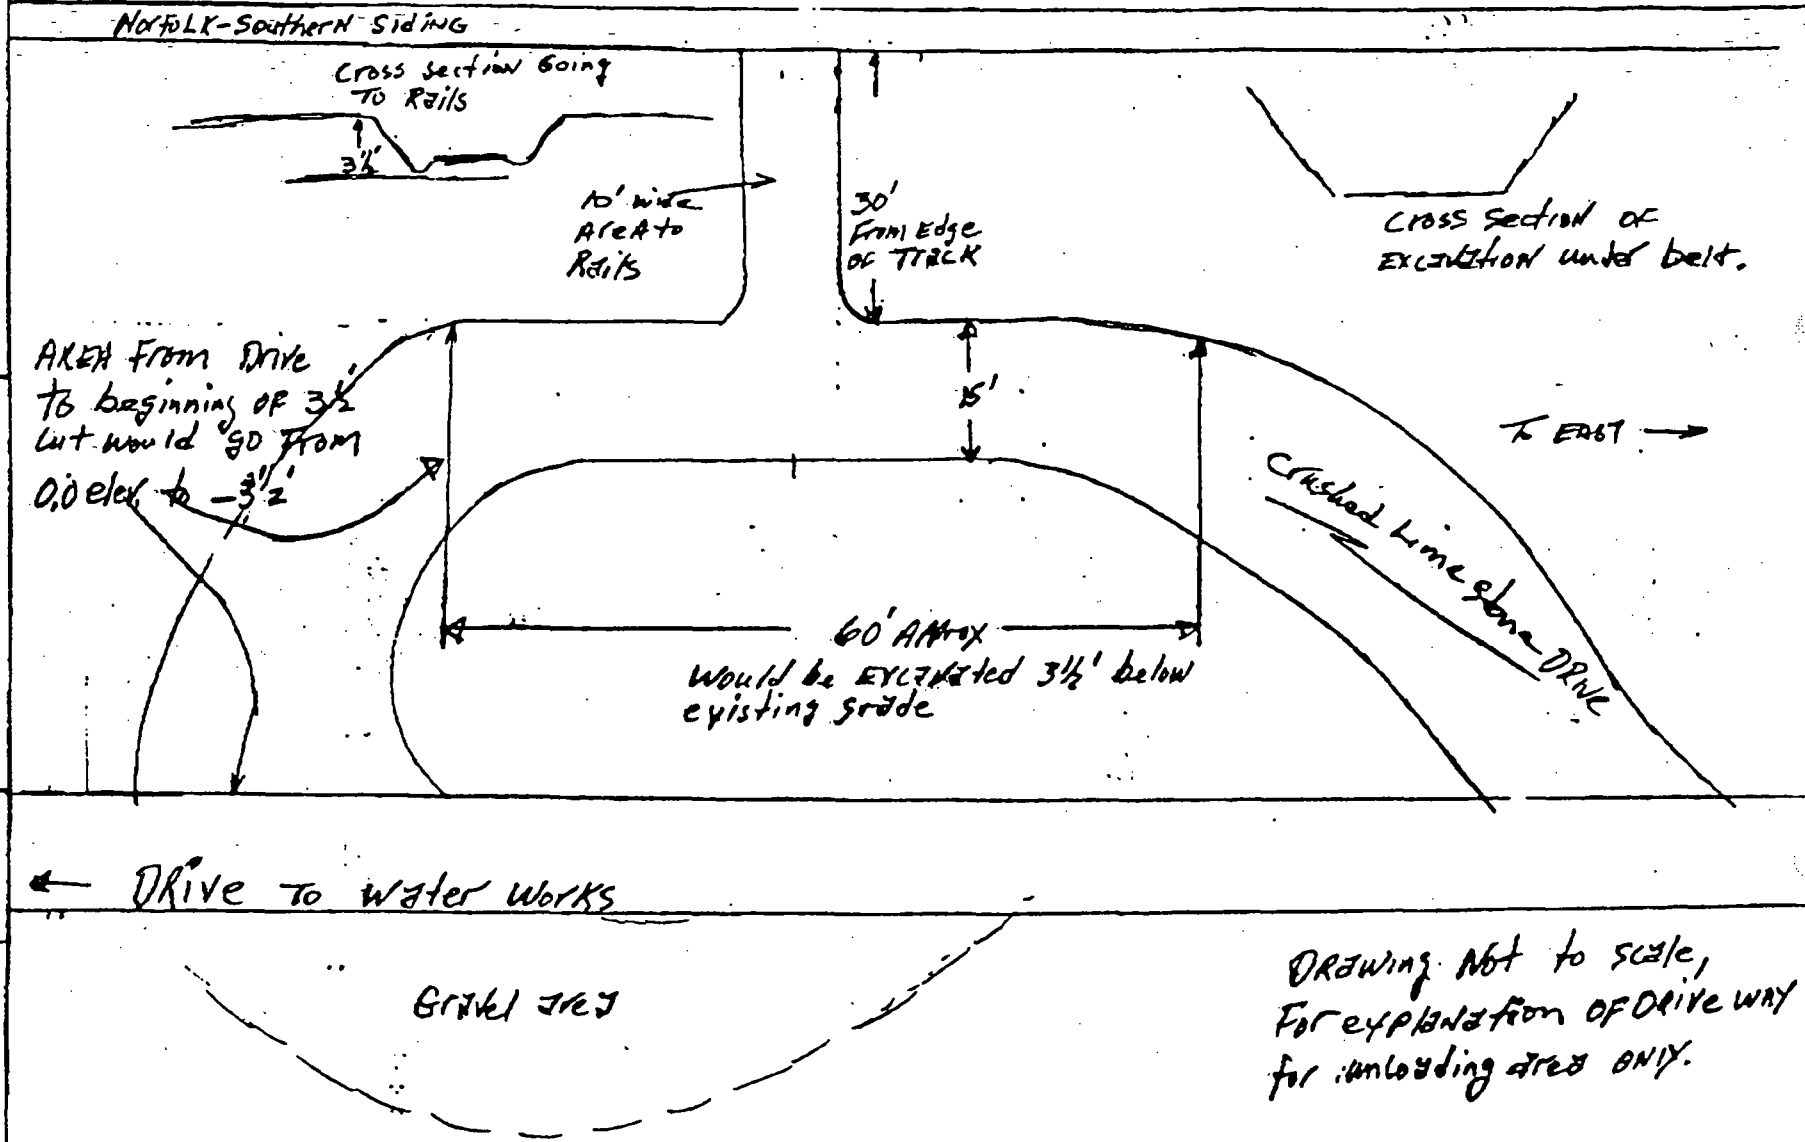 Norfolk-Southern Siding
Cross section Going
To Rails
3½'
10' wide
Area to
Rails
30'
From Edge
of Track
Cross section of
Excavation under belt.
AREA From Drive
to beginning of 3½'
cut would go From
0.0 elev. to -3½'
15'
To EAST
Crushed Limestone DRIVE
60' Approx
Would be Excavated 3½' below
existing grade
DRive To Water Works
Gravel area
Drawing Not to scale,
For explanation of Driveway
for unloading area ONLY.